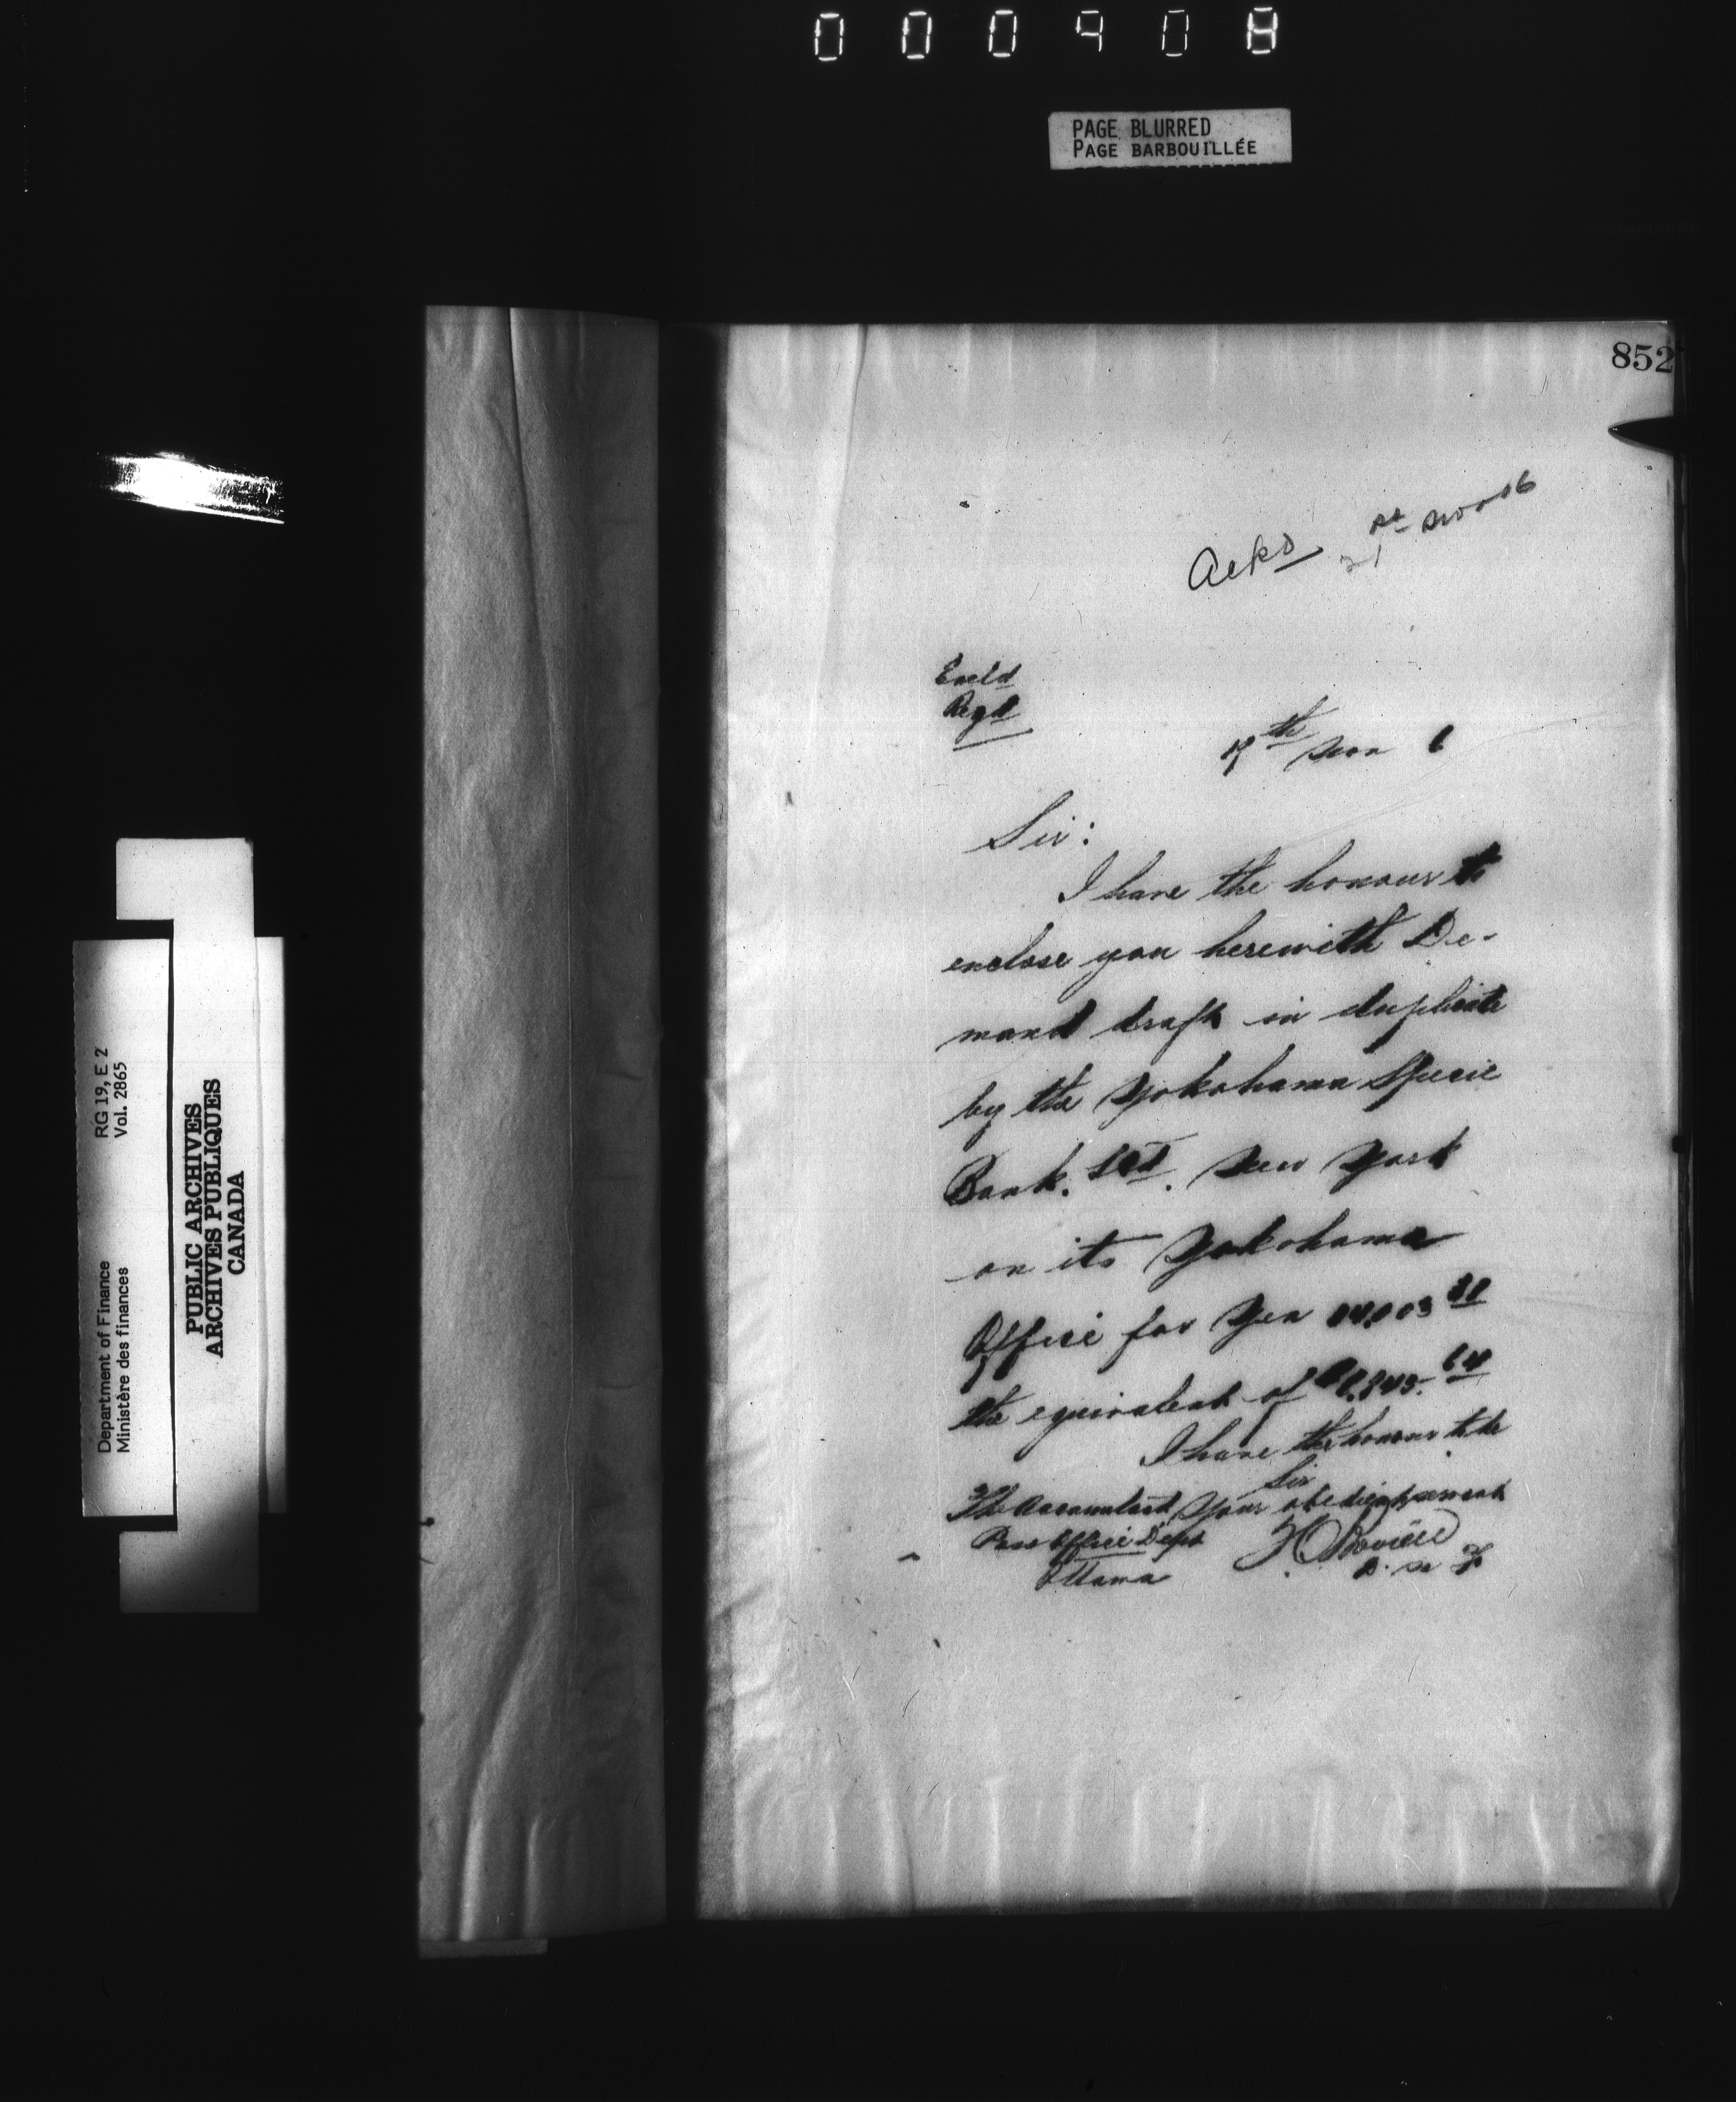 PAGE BLURRED
PAGE BARBOUILLÉE
852
Ackd 21st Nov 06
Encld
Regd
17th Nov 6
Sir:
I have the honour to
enclose you herewith De-
mand draft in duplicate
by the Yokohama Specie
Bank. Ltd. New York
on its Yokohama
Office for Yen
the equivalent of
I have the honour to be
Sir
The Accountant Your obedient servant
Post Office Dept
Ottawa
D. M F
Department of Finance RG 19, E 2
Ministère des finances Vol. 2865
PUBLIC ARCHIVES
ARCHIVES PUBLIQUES
CANADA